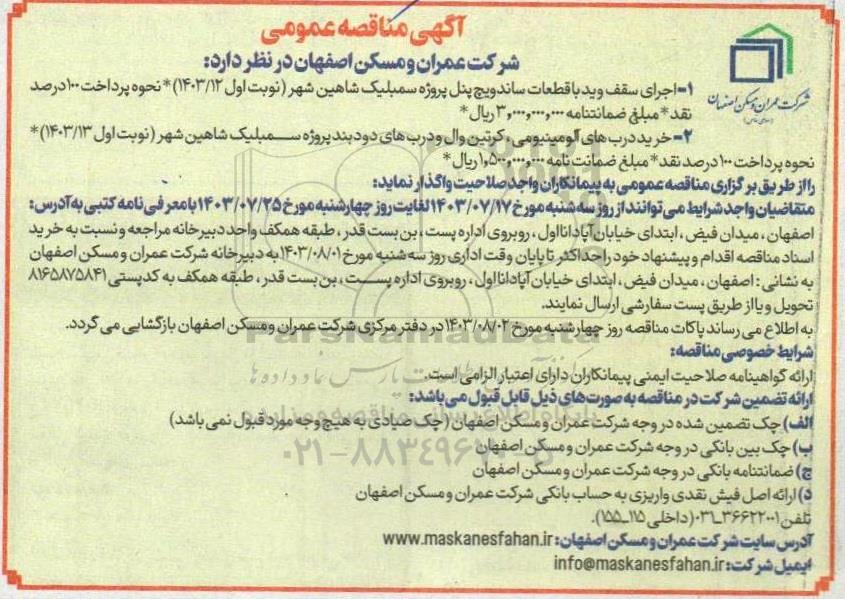 آگهی مناقصه عمومی
شرکت عمران و مسکن اصفهان در نظر دارد:
شرکت عمران و مسکن اصفهان
(سهامی خاص)
۱- اجرای سقف وید با قطعات ساندویچ پنل پروژه سمبلیک شاهین شهر (نوبت اول ۱۴۰۳/۱۲) * نحوه پرداخت ۱۰۰ درصد
نقد * مبلغ ضمانتنامه ۳,۰۰۰,۰۰۰,۰۰۰ ریال *
۲- خرید درب های آلومینیومی، کرتین وال و درب های دودبند پروژه سمبلیک شاهین شهر (نوبت اول ۱۴۰۳/۱۳) *
نحوه پرداخت ۱۰۰ درصد نقد * مبلغ ضمانت نامه ۱,۵۰۰,۰۰۰,۰۰۰ ریال *
را از طریق برگزاری مناقصه عمومی به پیمانکاران واجد صلاحیت واگذار نماید:
متقاضیان واجد شرایط می توانند از روز سه شنبه مورخ ۱۴۰۳/۰۷/۱۷ لغایت روز چهارشنبه مورخ ۱۴۰۳/۰۷/۲۵ با معرفی نامه کتبی به آدرس:
اصفهان، میدان فیض، ابتدای خیابان آپادانا اول، روبروی اداره پست، بن بست قدر، طبقه همکف واحد دبیرخانه مراجعه و نسبت به خرید
اسناد مناقصه اقدام و پیشنهاد خود را حداکثر تا پایان وقت اداری روز سه شنبه مورخ ۱۴۰۳/۰۸/۰۱ به دبیرخانه شرکت عمران و مسکن اصفهان
به نشانی: اصفهان، میدان فیض، ابتدای خیابان آپادانا اول، روبروی اداره پست، بن بست قدر، طبقه همکف به کدپستی ۸۱۶۵۸۷۵۸۴۱
تحویل و یا از طریق پست سفارشی ارسال نمایند.
به اطلاع می رساند پاکات مناقصه روز چهارشنبه مورخ ۱۴۰۳/۰۸/۰۲ در دفتر مرکزی شرکت عمران و مسکن اصفهان بازگشایی می گردد.
شرایط خصوصی مناقصه:
ارائه گواهینامه صلاحیت ایمنی پیمانکاران دارای اعتبار الزامی است.
ارائه تضمین شرکت در مناقصه به صورت های ذیل قابل قبول می باشد:
الف) چک تضمین شده در وجه شرکت عمران و مسکن اصفهان (چک صیادی به هیچ وجه مورد قبول نمی باشد)
ب) چک بین بانکی در وجه شرکت عمران و مسکن اصفهان
ج) ضمانتنامه بانکی در وجه شرکت عمران و مسکن اصفهان
د) ارائه اصل فیش نقدی واریزی به حساب بانکی شرکت عمران و مسکن اصفهان
تلفن ۳۶۶۲۲۰۰۱-۰۳۱ (داخلی ۱۱۵-۱۵۵).
آدرس سایت شرکت عمران و مسکن اصفهان: www.maskanesfahan.ir
ایمیل شرکت: info@maskanesfahan.ir
ParsNamadData
پایگاه اطلاع رسانی مناقصه و مزایده